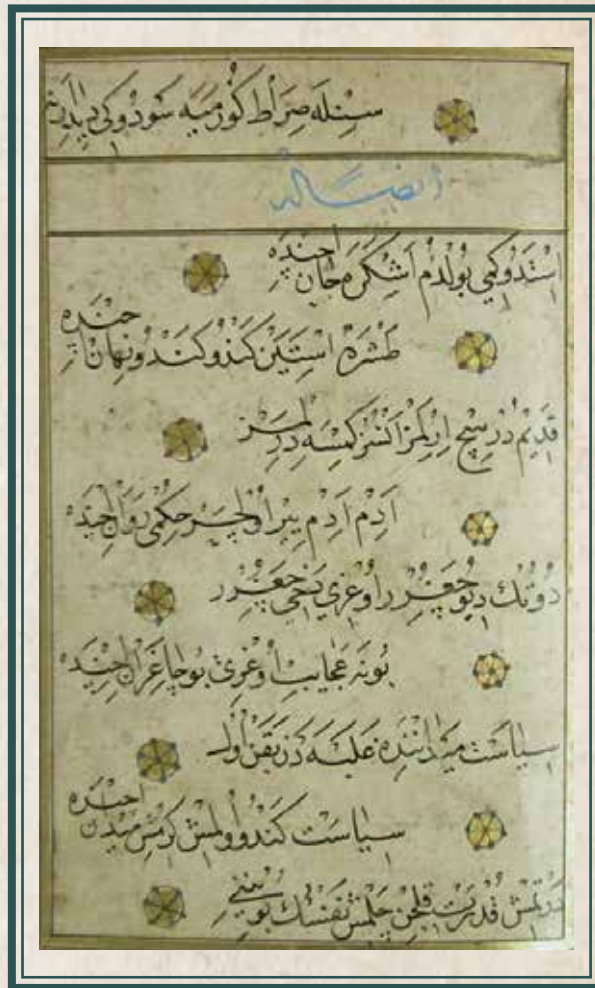 سنله صراط كوزمیه سودوكی
ایضا له
استدوكمی بولدم اشكره جان اچنده
طشره استین كندو كندو نهان اچنده
قدیم در هیچ ایرلمز انسز كمسه درلمز
ادم ادم ییر اولچر حكمی روان اچنده
دوتك دیو چغرر اوغری دخی چغرر
بو نه عجایب اوغری بو چاغران اچنده
سیاست میداننده غلبه دن بقن اول
سیاست كندو اولمش كرمش میدان اچنده
درتمش قدرت قلجن چلمش نفسك بویننی